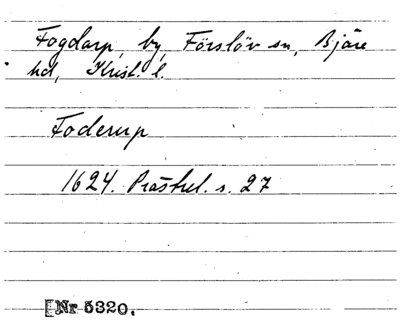 Fogdarp, by, Förslöv sn, Bjäre
hd, Krist. l.
Foderup
1624. Prästrel. s. 27
[Nr 5320.